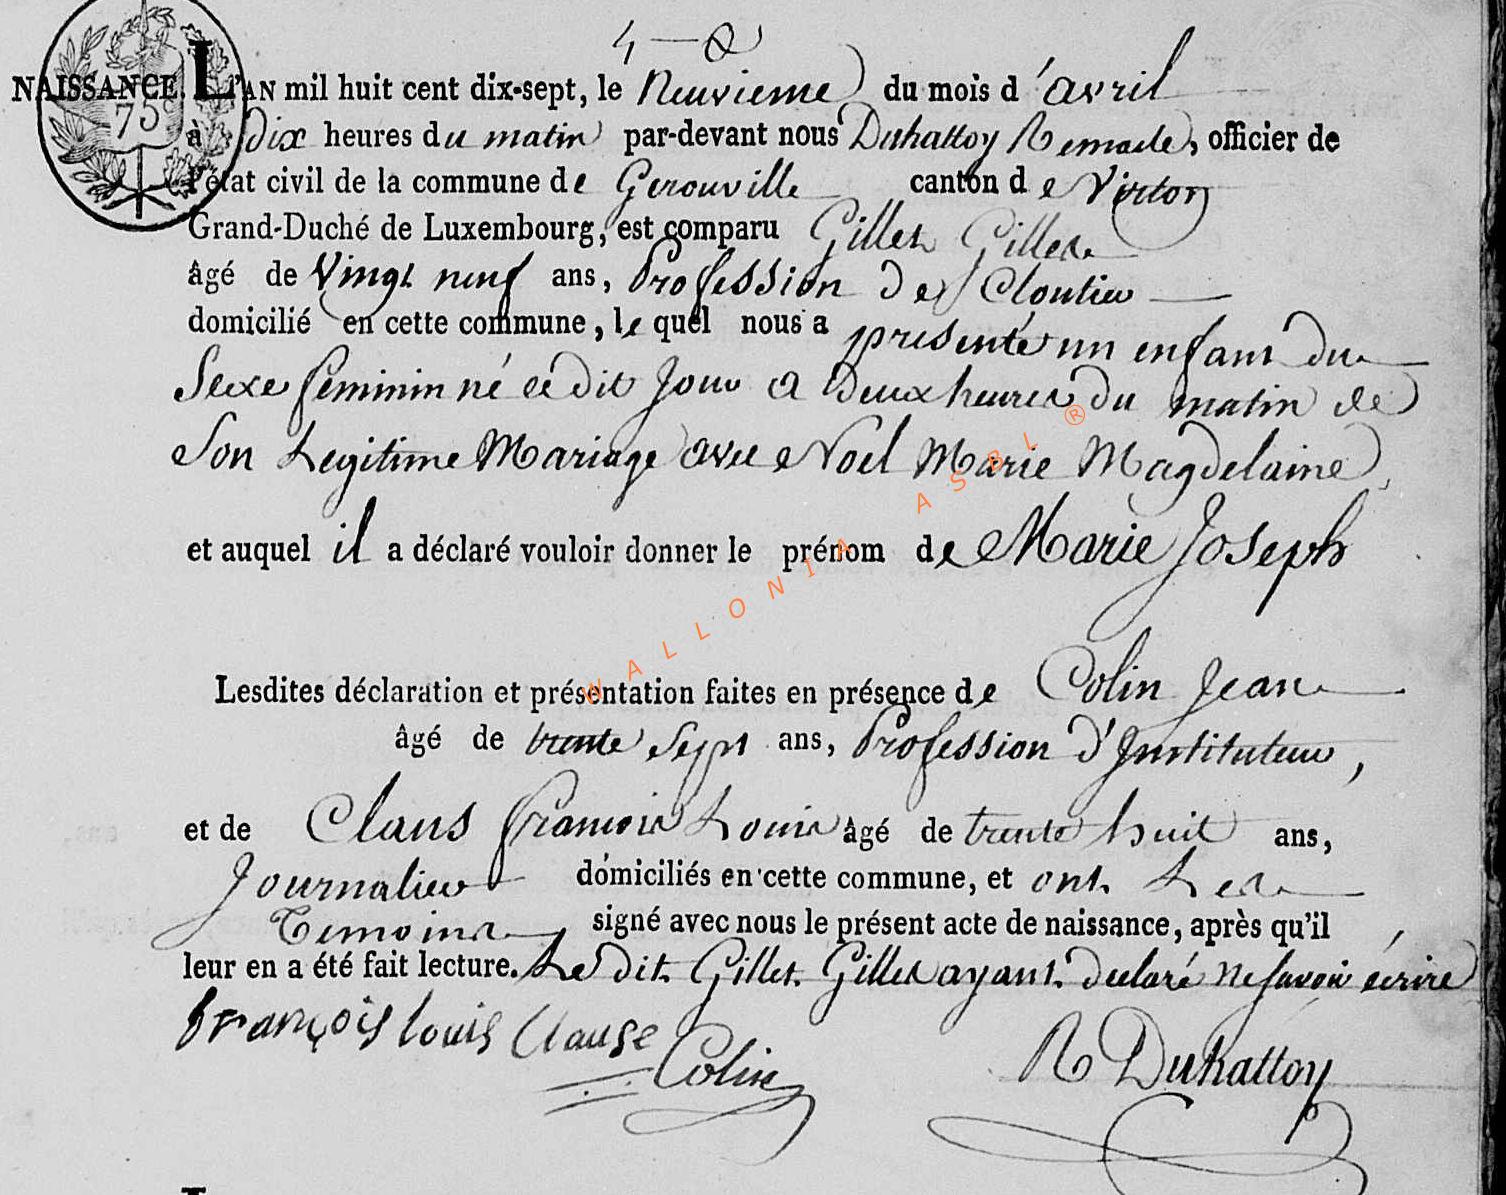 4 — 8
NAISSANCE. L'AN mil huit cent dix-sept, le Neuvieme du mois d'avril
75c
à dix heures du matin par-devant nous Duhattoy Remacle, officier de
l'état civil de la commune de Gerouville canton de Virton
Grand-Duché de Luxembourg, est comparu Gillet Gilles
âgé de Vingt neuf ans, Profession De Cloutier
domicilié en cette commune, le quel nous a presenté un enfant du
Sexe feminin né cedit Jour a Deux heures Du matin de
Son Legitime Mariage avec Noel Marie Magdelaine,
et auquel il a déclaré vouloir donner le prénom de Marie Joseph
Lesdites déclaration et présentation faites en présence de Colin Jean
âgé de trente Sept ans, Profession D'Instituteur,
et de Claus francois Louis âgé de trente huit ans,
Journalier domiciliés en cette commune, et ont Les
Temoins signé avec nous le présent acte de naissance, après qu'il
leur en a été fait lecture. Ledit Gillet Gilles ayant declaré ne savoir écrire
françois louis Clause
Colin
R Duhattoy
WALLONIA ASBL ®